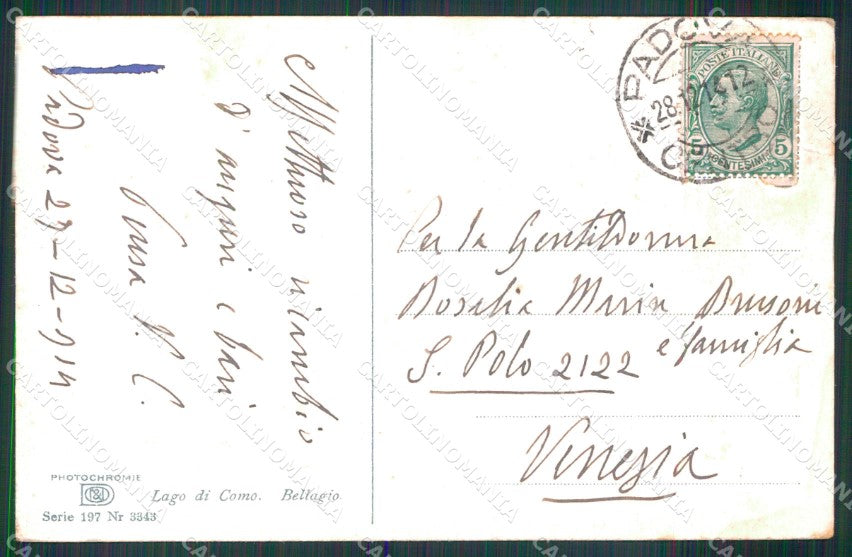 Affettuoso ricambio
d'auguri e baci
Padova 27-12-914
PADOVA
28.12.14.12
POSTE ITALIANE
5 5
CENTESIMI
Per la Gentildonna
Rosalia Maria Brusoni
e famiglia
S. Polo 2122
Venezia
PHOTOCHROMIE
Lago di Como. Bellagio
Serie 197 Nr 3343
CARTOLINOMANIA